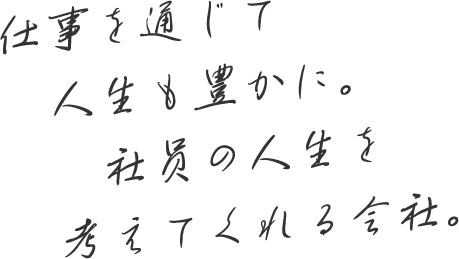 仕事を通じて
人生も豊かに。
社員の人生を
考えてくれる会社。